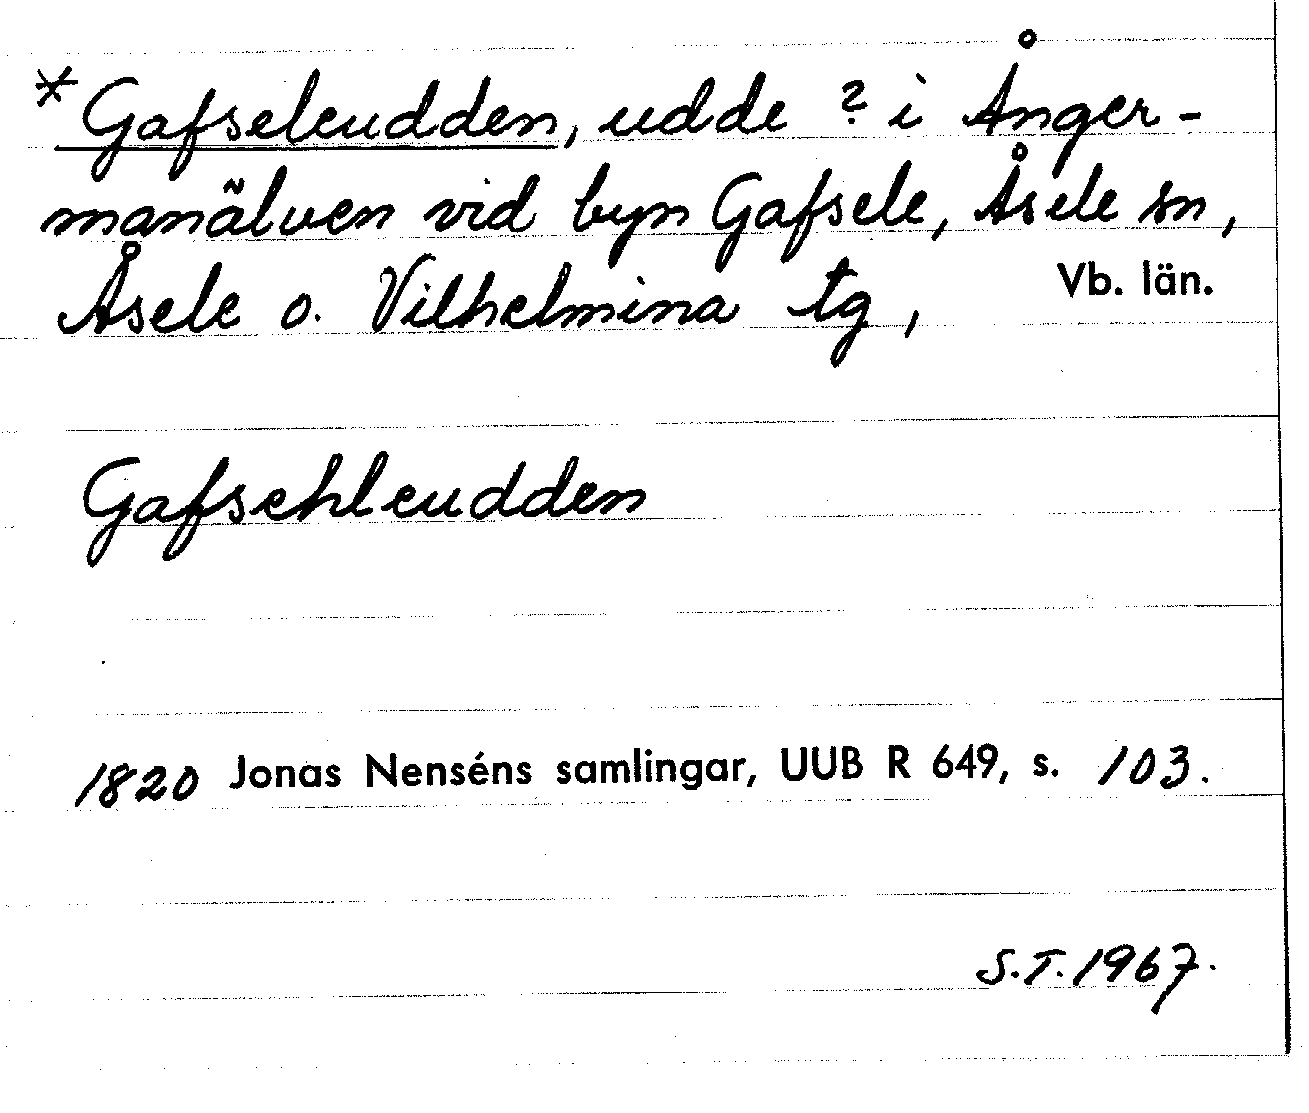 *Gafseleudden, udde ? i Ånger-
manälven vid byn Gafsele, Åsele sn,
Åsele o. Vilhelmina tg, Vb. län.
Gafsehleudden
1820 Jonas Nenséns samlingar, UUB R 649, s. 103.
S.T. 1967.